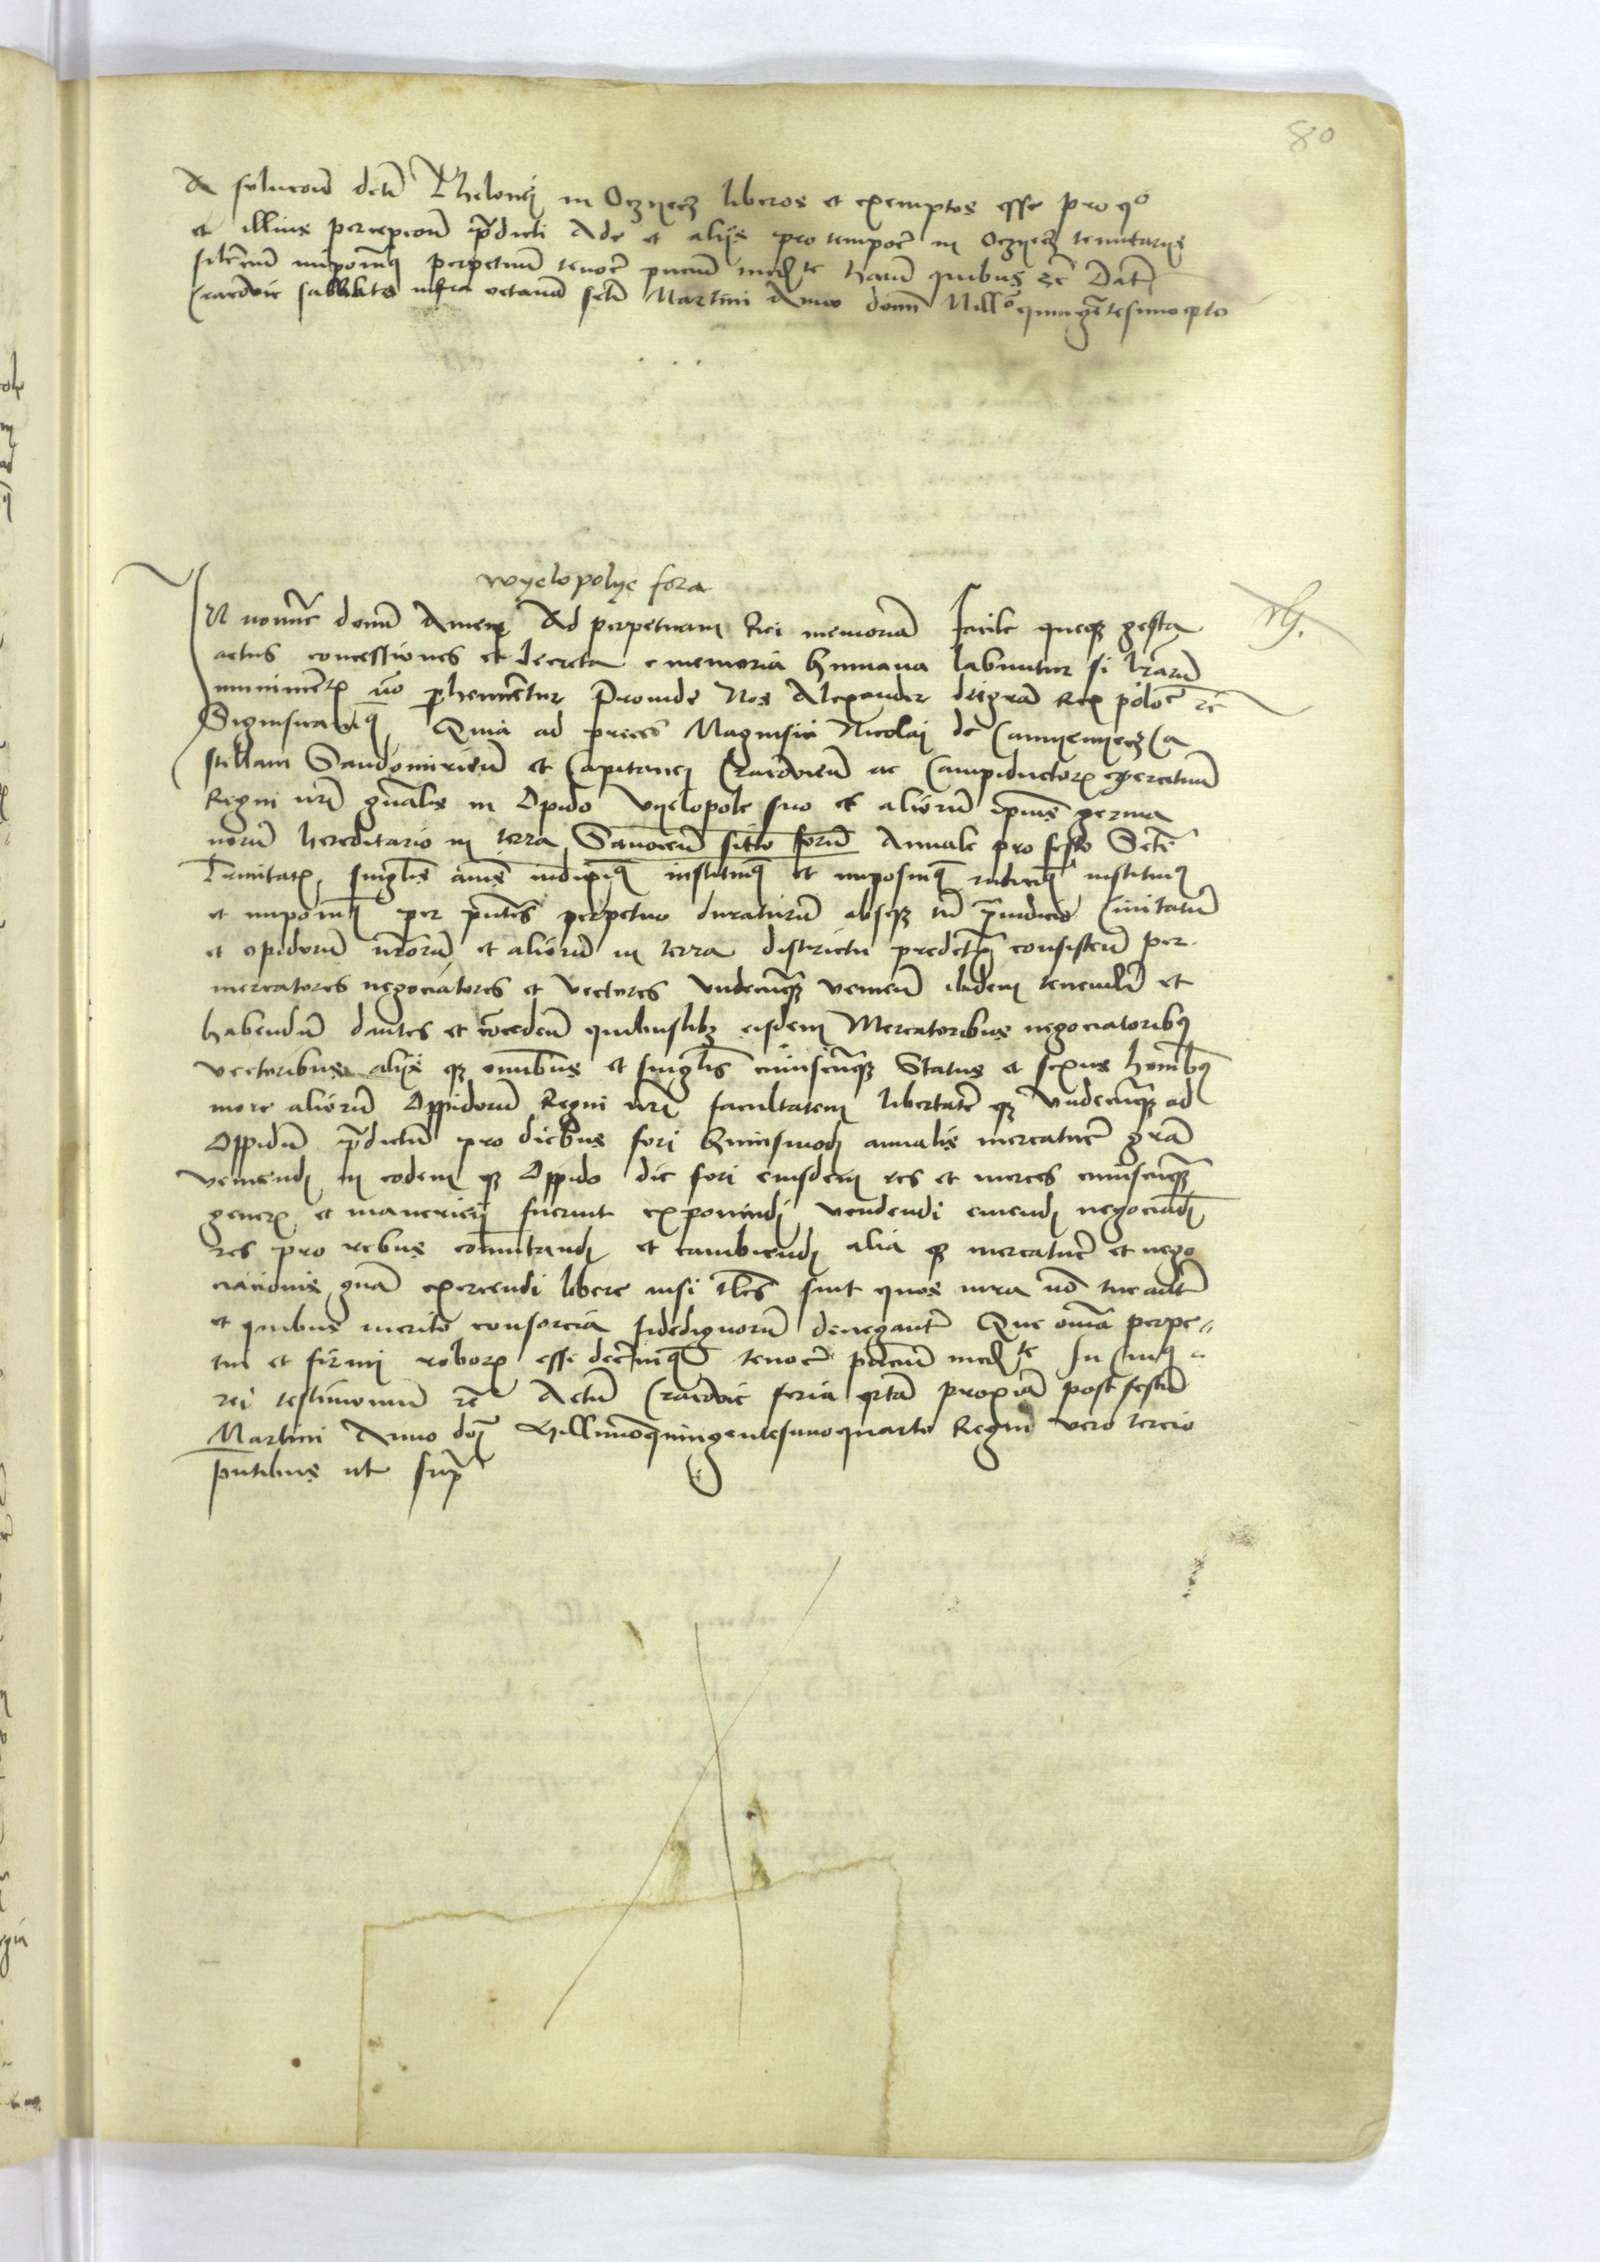 80
A solucione dcti Thelonej in Oczyecz liberos et exemptos esse pro quo
et illius percepcione pdicti Ade et alijs pro tempore in Oczyecz tenutarijs
silencium imponimus perpetuum tenore pncium mediante harum quibus etc Dat
Cracovie sabbato infra octavas scti Martini Anno domini Millo quingentesimo
Wyelopolye fora
In nomine domini Amen Ad perpetuam Rei memoriam Facile queque gesta
actus concessiones et decreta e memoria humana labuntur si lrarum
munimentis non phennentur Proinde Nos Alexander dei gra Rex polonie etc
Significamus Quia ad preces Magnifici Nicolai de Camyenyecz Ca
stellani Sandomiriensis et Capitanei Cracoviensis ac Campiductoris exercituum
Regni nri gnalis in Opido Vyelopole suo et aliorum ipsius germa
norum hereditario in terra Sanocensi sitto forum Annale pro festo Scte
Trinitatis singulis annis indiximus instituimus et imposuimus instituimus
et imponimus per pntes perpetuo duraturum absque tamen preiudicio Civitatum
et opidorum nrorum et aliorum in terra districtu predictis consistencium per
mercatores negociatores et vectores undecunque venientes ibidem tenendum et
habendum dantes et concedentes quibuslibet eisdem Mercatoribus negociatoribus
vectoribus alijs que omnibus et singulis cuiuscunque Status et sexus hominibus
more aliorum Oppidorum Regni nri facultatem libertatem que undecunque ad
Oppidum pdictum pro diebus fori huiusmodi annalis mercature gra
veniendi in eodem que Oppido die fori eiusdem res et merces cuiuscunque
generis et manerieij fuerint exponendi vendendi emendi negociandi
res pro rebus comutandi et cambiendi alia que mercature et nego
ciacionis gnam exercendi libere nisi tales sint quos iura non tueantur
et quibus merito consorcia fidedignorum denegantur Que omnia perpe
tui et firmi roboris esse decernimus tenore pncium mediante In Cuius
rei testimonium etc Actum Cracovie feria quarta proxima post festum
Martini Anno domini Millimoquingentesimoquarto Regni vero tercio
pntibus ut supra